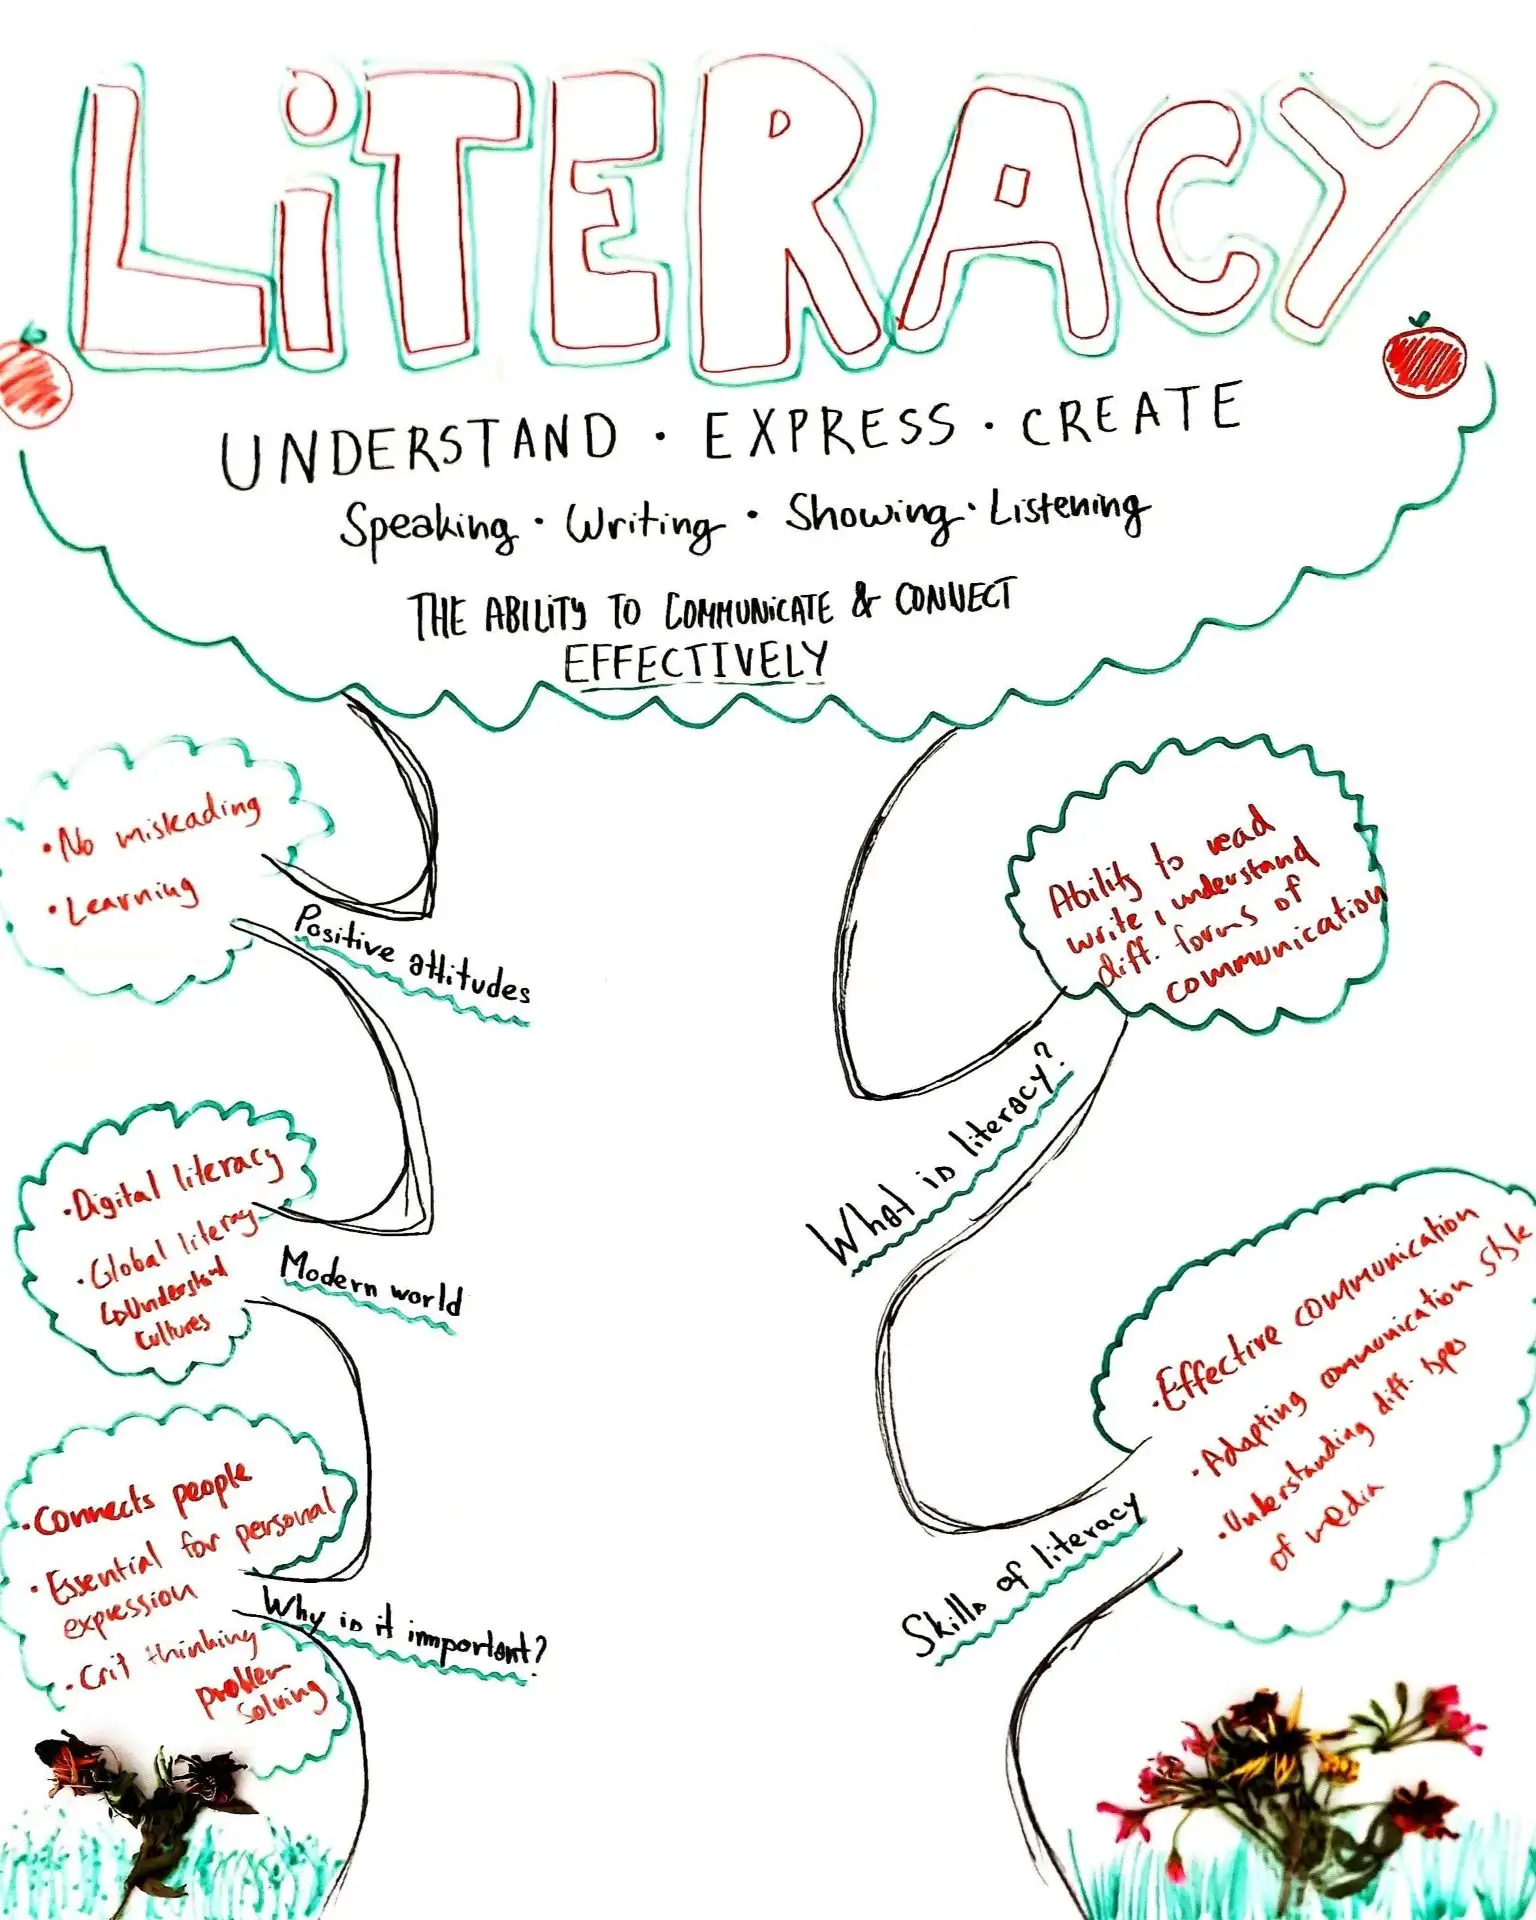 LiTERACY
UNDERSTAND · EXPRESS · CREATE
Speaking · Writing · Showing · Listening
THE ABILITY TO COMMUNICATE & CONNECT
EFFECTIVELY
• No misleading
• Learning
Positive attitudes
Ability to read
write, understand
diff. forms of
communication
What is literacy?
• Digital literacy
• Global literacy
↳ Understand
cultures
Modern world
• Effective communication
• Adapting communication style
• Understanding diff. types
of media
Skills of literacy
• Connects people
• Essential for personal
expression
• Crit thinking
problem
solving
Why is it important?